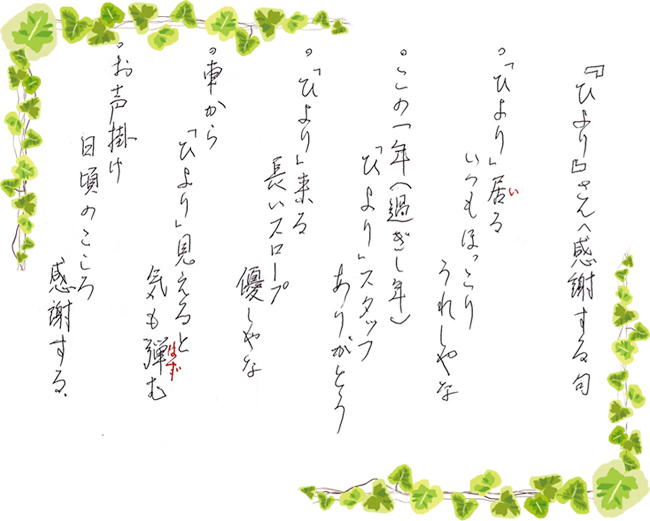 『ひより』さんへ感謝する句
。「ひより」居る
い
いつもほっこり
うれしやな
。この一年(過ぎし年)
「ひより」スタッフ
ありがとう
。「ひより」来る
長いスロープ
優しやな
。車から
「ひより」見えると
気も弾む
はず
。お声掛け
日頃のこころ
感謝する、